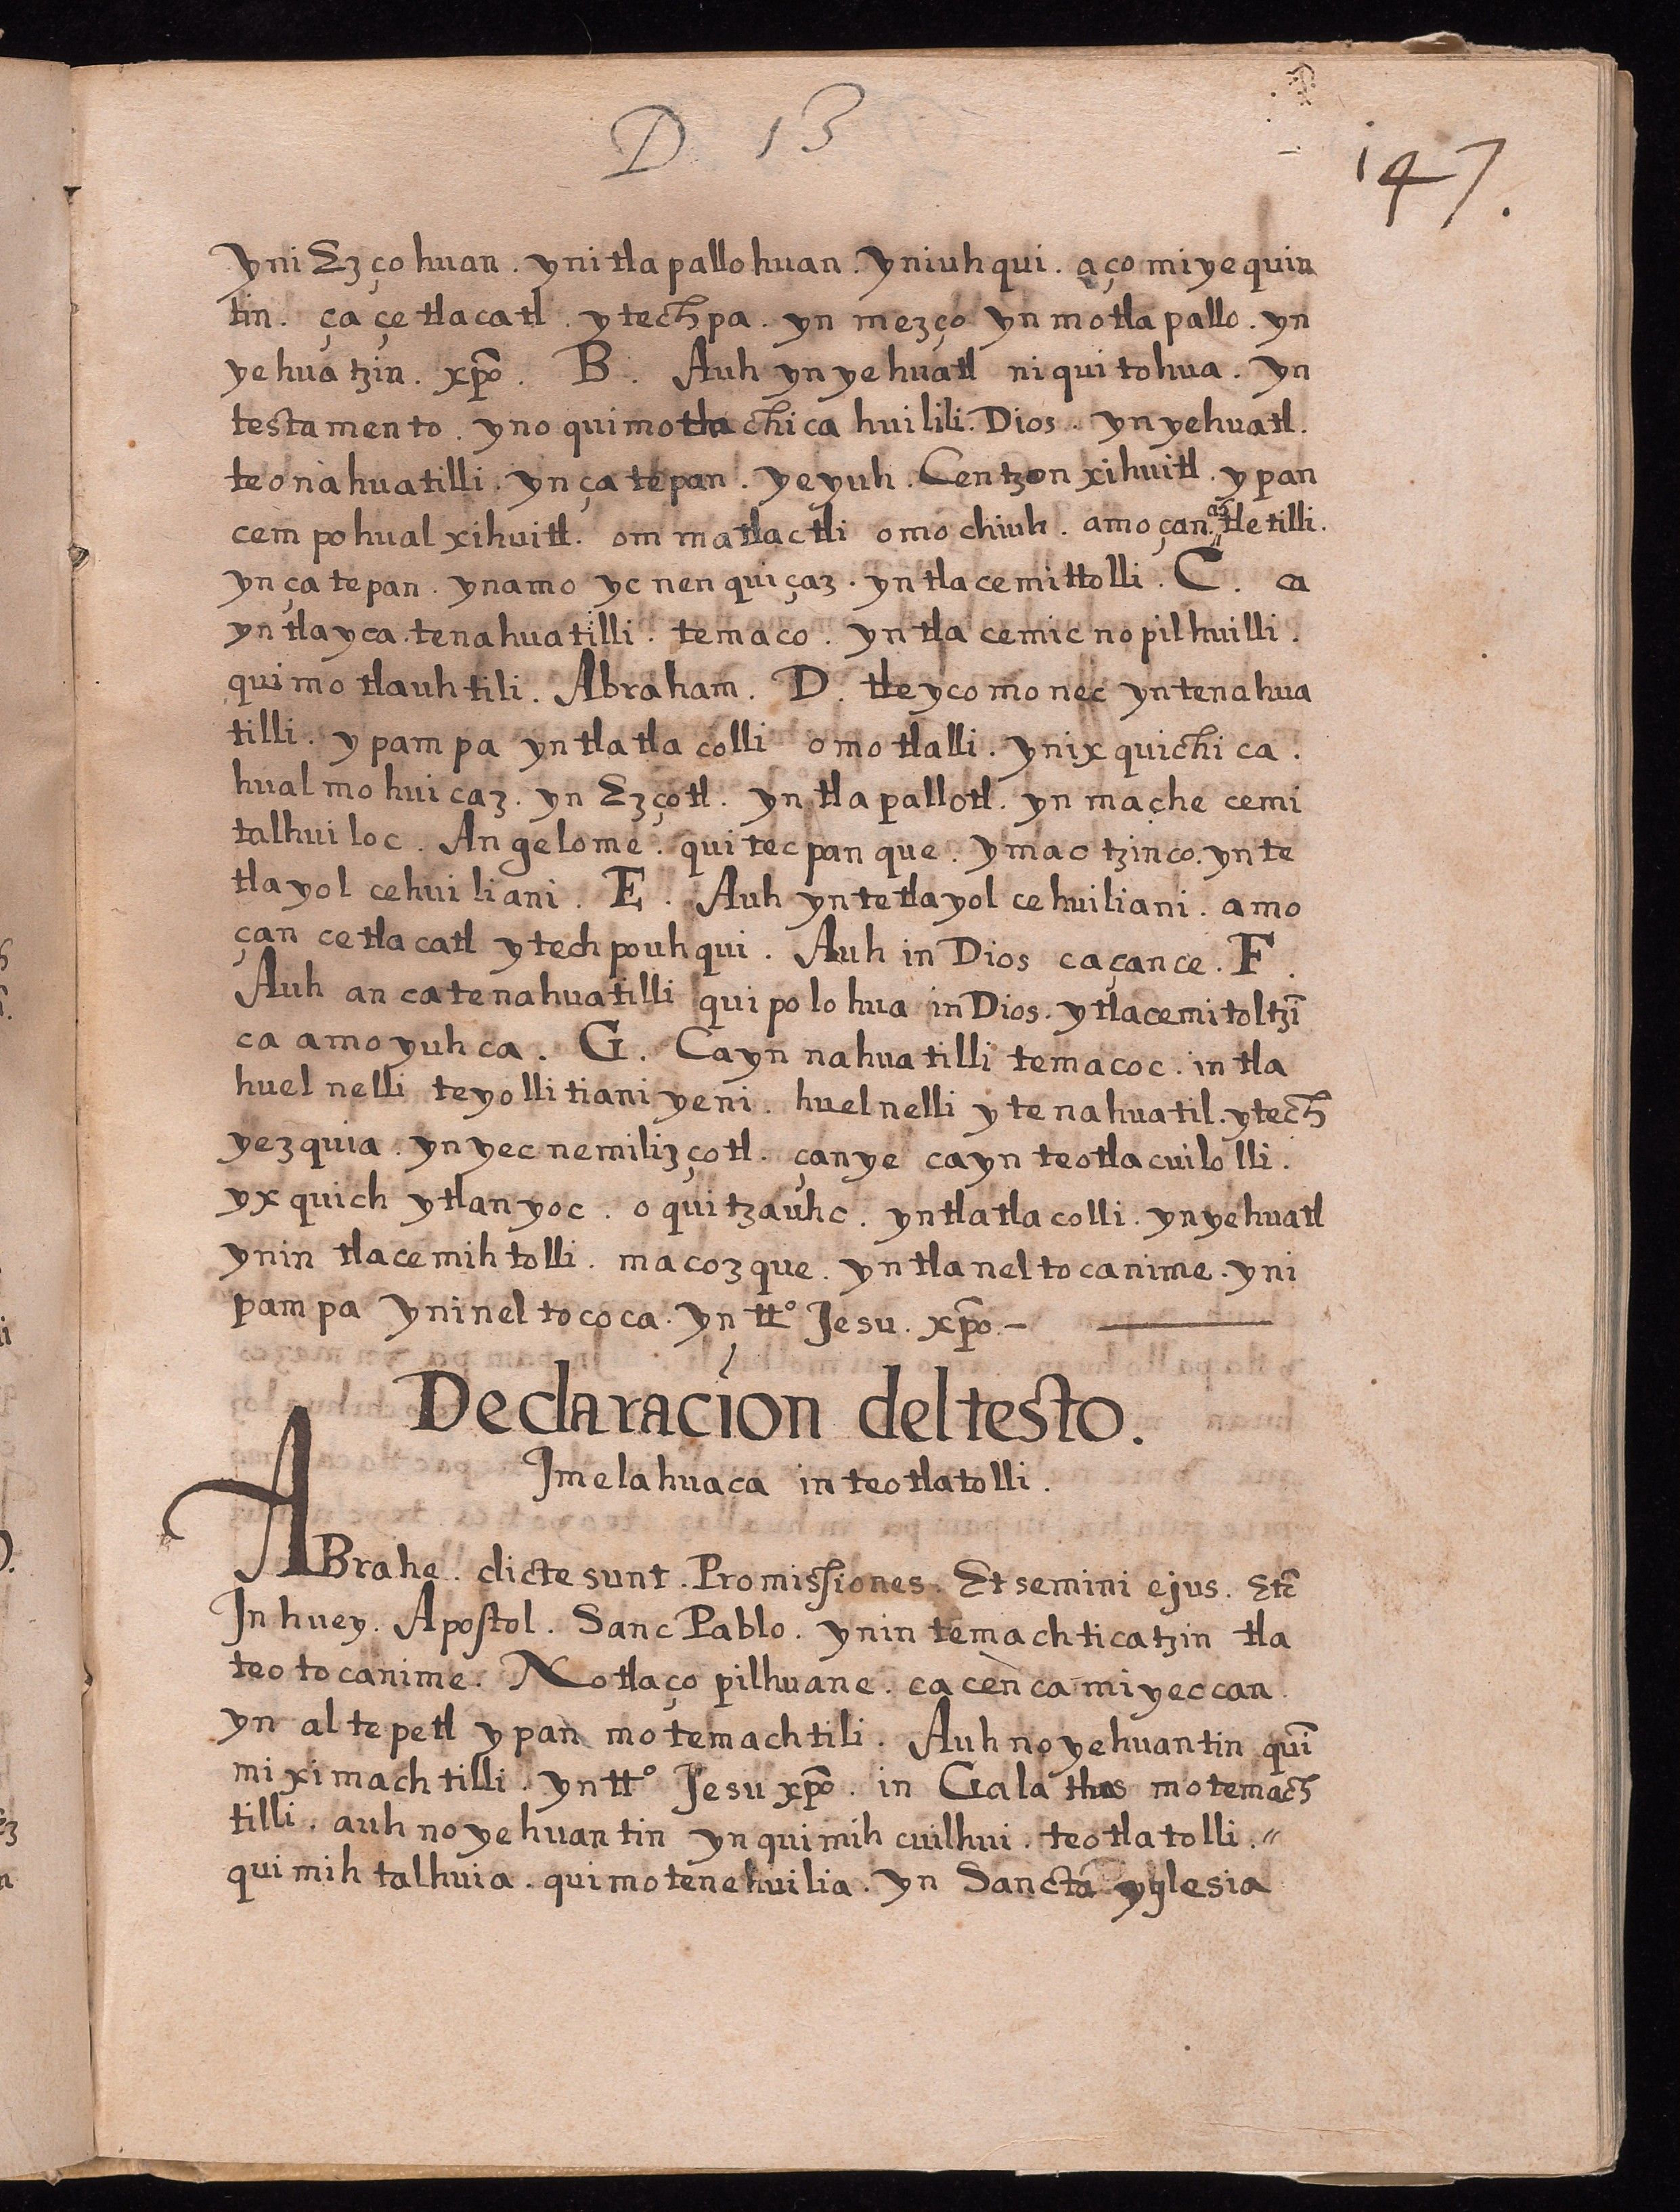 D. 13
147.
yni Ezço huan. ynitlapallohuan. yniuhqui. aço miyequin
tin. ça çe tlacatl. ytechpa. yn mezço yn motlapallo. yn
yehuatzin. xpõ. B. Auh yn yehuatl niquitohua. Yn
testamento. yno quimotlachicahuilili. Dios. ynyehuatl.
teonahuatilli. yn ça tepan. ye yuh. Centzon xihuitl. ypan
cempohualxihuitl. ommatlactli omochiuh. amo çan tletilli.
yn ça tepan. ynamo yc nenquiçaz. yn tlacemittolli. C. ca
yn tlayca. tenahuatilli. temaco. yn tla cemicnopilhuilli.
quimotlauhtili. Abraham. D. tleyco monec yn tenahua
tilli. ypampa yn tlatlacolli omotlalli. ynixquichica.
hualmohuicaz. yn Ezçotl. yn tlapallotl. yn mache cemi
talhuiloc. Angelome. quitecpanque. ymactzinco. yn te
tlayolcehuiliani. E. Auh yn tetlayolcehuiliani. amo
çan ce tlacatl ytechpouhqui. Auh in Dios ca çan ce. F.
Auh anca tenahuatilli quipolohua in Dios. ytlacemitoltzĩ
ca amo yuhca. G. Cayn nahuatilli temacoc. in tla
huel nelli teyollitiani yeni. huel nelli ytenahuatil. ytech
yezquia. yn yecnemilizçotl. çanye cayn teotlacuilolli.
yxquich ytlanyoc. oquitzauhc. yn tlatlacolli. yn yehuatl
ynin tlacemihtolli. macozque. yn tlaneltocanime. yni
pampa ynineltococa. yn ttº Jesu. xpõ.–
Declaracion del testo.
Jmelahuaca in teotlatolli.
ABrahe. dicte sunt. Promissiones. Et semini ejus. Etc̃
Jn huey. Apostol. Sanc Pablo. ynin temachticatzin tla
teotocanime. Notlaço pilhuane. ca cenca miyeccan.
yn altepetl ypan motemachtili. Auh no yehuantin quĩ
miximachtilli. yn ttº Jesu xpõ. in Galathas motemach
tilli. auh no yehuantin yn quimihcuilhui. teotlatolli.〃
quimihtalhuia. quimotenehuilia. yn Sancta yglesia